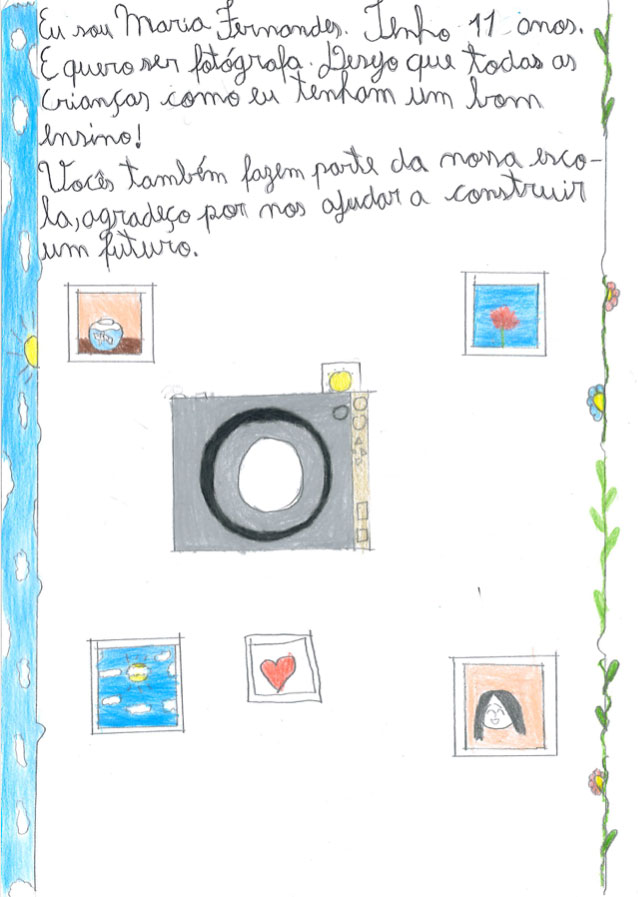 Eu sou Maria Fernandes. Tenho 11 anos.
E quero ser fotógrafa. Desejo que todas as
crianças como eu tenham um bom
ensino!
Vocês também fazem parte da nossa esco-
la, agradeço por nos ajudar a construir
um futuro.